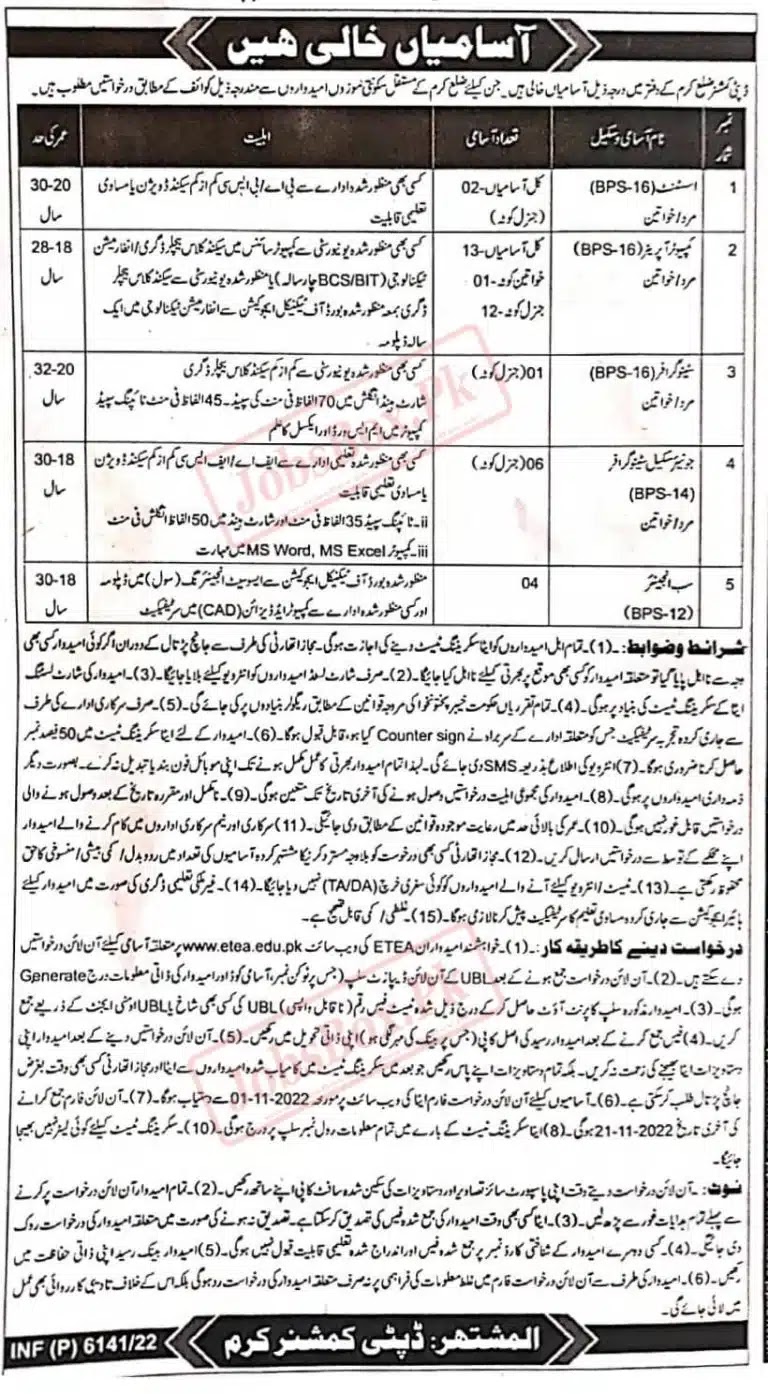 آسامیاں خالی ھیں
ڈپٹی کمشنر ضلع کرم کے دفتر میں درجہ ذیل آسامیاں خالی ہیں۔ جن کیلئے ضلع کرم کے مستقل سکونتی موزوں امیدواروں سے مندرجہ ذیل کوائف کے مطابق درخواستیں مطلوب ہیں۔
نمبر شمار
نام آسامی و سکیل
تعداد آسامی
اہلیت
عمر کی حد
1
اسسٹنٹ (BPS-16)
مرد/خواتین
کل آسامیاں-02
(جنرل کوٹہ)
کسی بھی منظور شدہ ادارے سے بی اے/بی ایس سی کم از کم سیکنڈ ڈویژن یا مساوی
تعلیمی قابلیت
30-20
سال
2
کمپیوٹر آپریٹر (BPS-16)
مرد/خواتین
کل آسامیاں-13
خواتین کوٹہ-01
جنرل کوٹہ-12
کسی بھی منظور شدہ یونیورسٹی سے کمپیوٹر سائنس میں سیکنڈ کلاس بیچلر ڈگری/انفارمیشن
ٹیکنالوجی (BCS/BIT چار سالہ) یا منظور شدہ یونیورسٹی سے سیکنڈ کلاس بیچلر
ڈگری بمعہ منظور شدہ بورڈ آف ٹیکنیکل ایجوکیشن سے انفارمیشن ٹیکنالوجی میں ایک
سالہ ڈپلومہ
28-18
سال
3
سٹینوگرافر (BPS-16)
مرد/خواتین
01 (جنرل کوٹہ)
کسی بھی منظور شدہ یونیورسٹی سے کم از کم سیکنڈ کلاس بیچلر ڈگری
شارٹ ہینڈ انگلش میں 70 الفاظ فی منٹ کی سپیڈ۔ 45 الفاظ فی منٹ ٹائپنگ سپیڈ
کمپیوٹر میں ایم ایس ورڈ اور ایکسل کا علم
32-20
سال
4
جونیئر سکیل سٹینوگرافر
(BPS-14)
مرد/خواتین
06 (جنرل کوٹہ)
کسی بھی منظور شدہ تعلیمی ادارے سے ایف اے/ایف ایس سی کم از کم سیکنڈ ڈویژن
یا مساوی تعلیمی قابلیت
ii۔ ٹائپنگ سپیڈ 35 الفاظ فی منٹ اور شارٹ ہینڈ میں 50 الفاظ انگلش فی منٹ
iii۔ کمپیوٹر MS Word, MS Excel میں مہارت
30-18
سال
5
سب انجینئر
(BPS-12)
04
منظور شدہ بورڈ آف ٹیکنیکل ایجوکیشن سے ایسوسیٹ انجینئرنگ (سول) میں ڈپلومہ
اور کسی منظور شدہ ادارے سے کمپیوٹر ایڈڈ ڈیزائن (CAD) میں سرٹیفکیٹ
30-18
سال
شرائط وضوابط:۔ (1)۔ تمام اہل امیدواروں کو ایٹا سکریننگ ٹیسٹ دینے کی اجازت ہوگی۔ مجاز اتھارٹی کی طرف سے جانچ پڑتال کے دوران اگر کوئی امیدوار کسی بھی
وجہ سے نااہل پایا گیا تو متعلقہ امیدوار کو کسی بھی موقع پر بھرتی کیلئے نااہل کیا جائیگا۔ (2)۔ صرف شارٹ لسٹڈ امیدواروں کو انٹرویو کیلئے بلایا جائیگا۔ (3)۔ امیدوار کی شارٹ لسٹنگ
ایٹا کے سکریننگ ٹیسٹ کی بنیاد پر ہوگی۔ (4)۔ تمام تقرریاں حکومت خیبر پختونخوا کی مروجہ قوانین کے مطابق ریگولر بنیادوں پر کی جائے گی۔ (5)۔ صرف سرکاری ادارے کی طرف
سے جاری کردہ تجربہ سرٹیفکیٹ جس کو متعلقہ ادارے کے سربراہ نے Counter sign کیا ہو، قابل قبول ہوگا۔ (6)۔ امیدوار کے لئے ایٹا سکریننگ ٹیسٹ میں 50 فیصد نمبر
حاصل کرنا ضروری ہوگا۔ (7) انٹرویو کی اطلاع بذریعہ SMS دی جائے گی۔ لہذا تمام امیدوار بھرتی کا عمل مکمل ہونے تک اپنی موبائل فون بند یا تبدیل نہ کرے۔ بصورت دیگر
ذمہ داری امیدواروں پر ہوگی۔ (8)۔ امیدوار کی مجموعی اہلیت درخواستیں وصول ہونے کی آخری تاریخ تک متعین ہوگی۔ (9)۔ نامکمل اور مقررہ تاریخ کے بعد وصول ہونے والی
درخواستیں قابل غور نہیں ہوگی۔ (10)۔ عمر کی بالائی حد میں رعایت موجودہ قوانین کے مطابق دی جائیگی۔ (11) سرکاری اور نیم سرکاری اداروں میں کام کرنے والے امیدوار
اپنے محکمے کے توسط سے درخواستیں ارسال کریں۔ (12)۔ مجاز اتھارٹی کسی بھی درخوست کو بلاوجہ مسترد کرنے کا مشتہر کردہ آسامیوں کی تعداد میں ردوبدل/کمی بیشی/منسوخی کا حق
محفوظ رکھتی ہے۔ (13)۔ ٹیسٹ/انٹرویو کیلئے آنے والے امیدواروں کو کوئی سفری خرچ (TA/DA) نہیں دیا جائیگا۔ (14)۔ غیر ملکی تعلیمی ڈگری کی صورت میں امیدوار کیلئے
ہائیر ایجوکیشن سے جاری کردہ مساوی تعلیم کا سرٹیفکیٹ پیش کرنا لازمی ہوگا۔ (15)۔ غلطی/کمی قابل تصحیح ہے۔
درخواست دینے کا طریقہ کار:۔ (1)۔ خواہشمند امیدواران ETEA کی ویب سائٹ www.etea.edu.pk پر متعلقہ آسامی کیلئے آن لائن درخواستیں
دے سکتے ہیں۔ (2)۔ آن لائن درخواست جمع ہونے کے بعد UBL کے آن لائن ڈیپازٹ سلپ (جس پر ٹوکن نمبر، آسامی کوڈ اور امیدوار کی ذاتی معلومات درج Generate
ہوگی۔ (3)۔ امیدوار مذکورہ سلپ کا پرنٹ آؤٹ حاصل کر کے درج ذیل شدہ ٹیسٹ فیس رقم (ناقابل واپسی) UBL کی کسی بھی شاخ یا UBL اومنی ایجنٹ کے ذریعے جمع
کریں۔ (4) فیس جمع کرنے کے بعد امیدوار رسید کی اصل کاپی (جس پر بینک کی مہر لگی ہو) اپنی ذاتی تحویل میں رکھیں۔ (5)۔ آن لائن درخواستیں دینے کے بعد امیدوار اپنی
دستاویزات ایٹا بھیجنے کی زحمت نہ کریں۔ بلکہ تمام دستاویزات اپنے پاس رکھیں جو بعد میں سکریننگ ٹیسٹ میں کامیاب شدہ امیدواروں سے ایٹا اور مجاز اتھارٹی کسی بھی وقت بغرض
جانچ پڑتال طلب کر سکتی ہے۔ (6)۔ آسامیوں کیلئے آن لائن درخواست فارم ایٹا کی ویب سائٹ پر مورخہ 2022-11-01 سے دستیاب ہوگا۔ (7)۔ آن لائن فارم جمع کرانے
کی آخری تاریخ 2022-11-21 ہوگی۔ (8) ایٹا سکریننگ ٹیسٹ کے بارے میں تمام معلومات رول نمبر سلپ پر درج ہوگی۔ (10)۔ سکریننگ ٹیسٹ کیلئے کوئی لیٹر نہیں بھیجا
جائیگا۔
نوٹ:۔ آن لائن درخواست دیتے وقت اپنی پاسپورٹ سائز تصاویر اور دستاویزات کی سکین شدہ سافٹ کاپی اپنے ساتھ رکھیں۔ (2)۔ تمام امیدوار آن لائن درخواست پر کرنے
سے پہلے تمام ہدایات غور سے پڑھ لیں۔ (3)۔ ایٹا کسی بھی وقت امیدوار کی جمع شدہ فیس کی تصدیق کر سکتا ہے۔ تصدیق نہ ہونے کی صورت میں متعلقہ امیدوار کی درخواست روک
دی جائیگی۔ (4)۔ کسی دوسرے امیدوار کے شناختی کارڈ نمبر پر جمع شدہ فیس اور اندراج شدہ تعلیمی قابلیت قبول نہیں ہوگی۔ (5) امیدوار بینک رسید اپنی ذاتی حفاظت میں
رکھیں۔ (6)۔ امیدوار کی طرف سے آن لائن درخواست فارم میں غلط معلومات کی فراہمی پر نہ صرف متعلقہ امیدوار کی درخواست رد ہوگی بلکہ اس کے خلاف تادیبی کارروائی بھی عمل
میں لائی جائے گی۔
المشتھر: ڈپٹی کمشنر کرم
INF (P) 6141/22
JobsBox.Pk
JobsBox.Pk